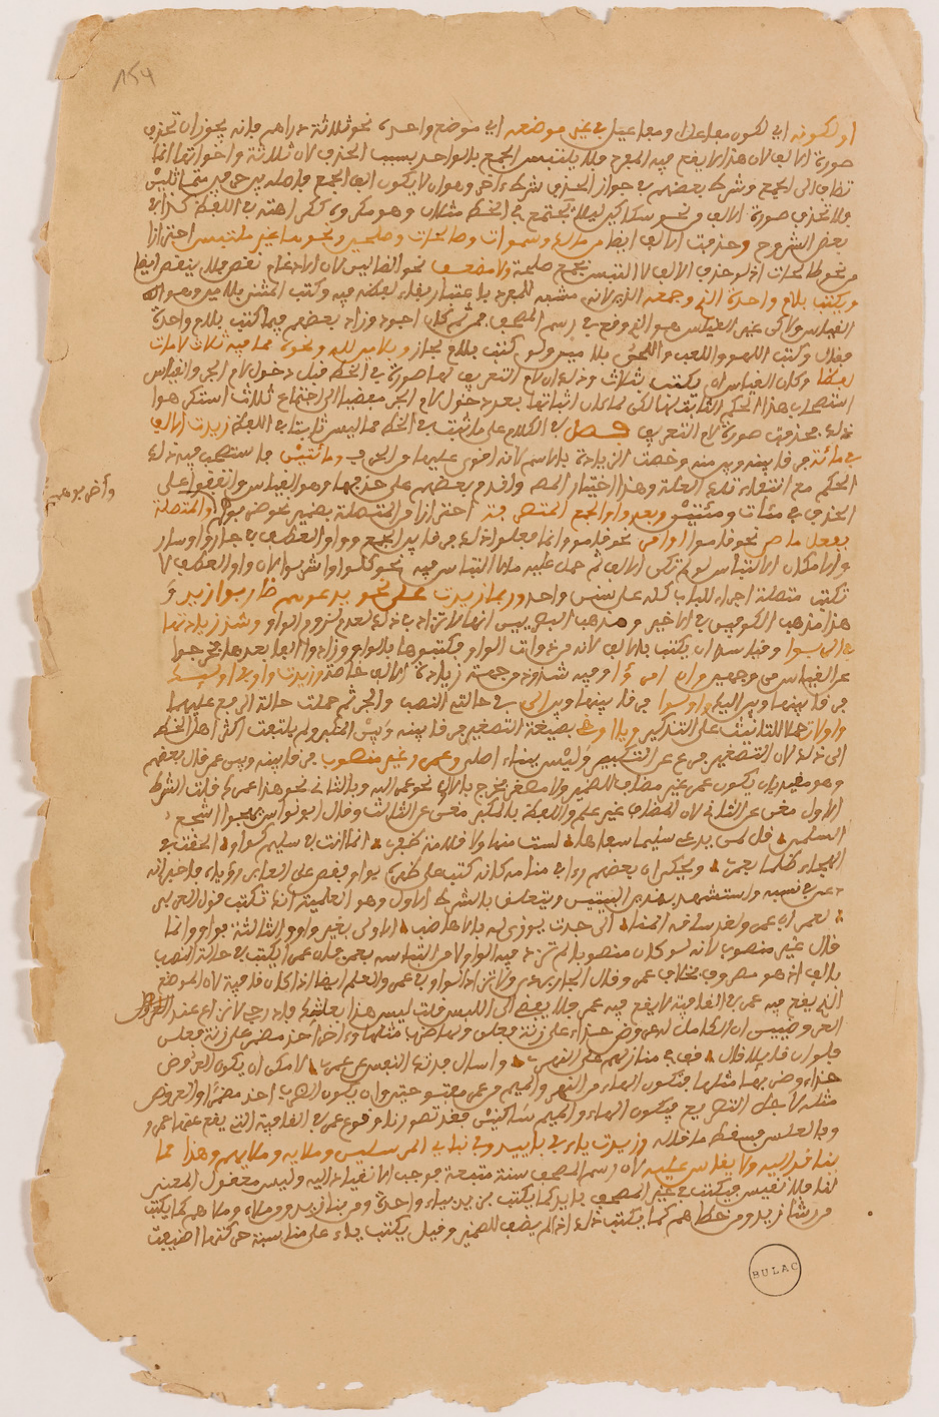 ٨٥٤
او لكونه اي لكون مفاعل او مفاعيل في غير موضعه اي موضع واحده نحو ثلاثة دراهم فانه يجوز ان تحذف
صورة الالف لان هذا لا يقع فيه المفرد فلا يلتبس الجمع بالواحد بسبب الحذف لان ثلاثة واخواتها انما
تضاف الى الجمع وشرط بعضهم في جواز الحذف شرطا اخر وهو ان لا يكون الف الجمع فاصله بين حرفين متماثلين
فلا تحذف صورة الالف من نحو سكاكين ليلا يجتمع في الخط مثلان وهو مكروه ككراهته في اللفظ كذا في
بعض الشروح وحذفت الالف ايضا من ملائكة وسموات وصالحات وصالحين ونحوهما غير ملتبس احترازا
من نحو طالحات اذ لو حذف الالف لالتبس بجمع طلحة ولا مضعف نحو الضالين لان الادغام نقص فلا ينقص ايضا
ويكتب بلام واحدة الذي وجمعه الذين لانه مشبه للمفرد باعتبار بقاء لفظه فيه وكتب المثنى بلامين وهو
القياس ولاكن غير القياس هو الذي وقع في رسم المصحف فمن ثم كان اجود وزاد بعضهم فيما كتب بلام واحدة
فقال وكتب اللهو واللعب واللحم بلامين ولو كتب بلام لجاز وبلامين لله ونحوه مما فيه ثلاث لامات
لفظا وكان القياس ان يكتب بثلاث وذلك ان لام التعريف لها صورة في الخط قبل دخول لام الجر والقياس
استصحاب هذا الحكم الثابت لها لكن لما كان اثباتها بعد دخول لام الجر مفضيا الى اجتماع ثلاث استكرهوا
ذلك فحذفت صورة لام التعريف فصل في الكلام على ما يثبت في الخط مما ليس ثابتا في اللفظ زيدت الالف
في مائة فرقا بينه وبين منه وخصت الزيادة بالاسم لانه اقوى عليها من الحرف ومائتين باستصحب فيه ذلك
الحكم مع انتفاء تلك العلة وهذا اختيار المص واقدم بعضهم على حذفها وهو القياس واتفقوا على
الحذف في مئات ومئين وبعد واو الجمع المتطرفة احترازا من المتصلة بضمير نحو ضربوهم والمتصلة
واخر بوهم
بفعل ماض نحو قاموا او امر نحو قوموا وانما فعلوا ذلك فرقا بين الجمع وواو العطف في جاروا وساروا
وامكان الالتباس لو لم تكن الالف ثم حمل عليه ما لا التباس فيه نحو كلوا واشربوا لان واو العطف لا
تكتب متصلة اجراء للباب كله على سنن واحد وربما زيدت على نحو يدعو هم ضاربوا زيد و
هذا مذهب الكوفيين في الاخير ومذهب البصريين انها لا تزاد في ذلك لعدم لزوم الواو وشذ زيادتها
في الربوا وقياسه ان يكتب بالالف لانه من ذوات الواو فكتبوها بالواو وزادوا الفا بعدها فخرجوا
عن القياس من وجهين وان امرؤا وفيه شذوذ من جهة زيادة الالف خاصة وزيدت واو في اولئك
فرقا بينها وبين اليك واولوا فرقا بينها وبين الى في حالتي النصب والجر ثم حملت حالة الرفع عليهما
واولات حملا للتانيث على التذكير ويا اوخي بصيغة التصغير فرقا بينه وبين المكبر ولم يلتفت اكثر اهل الخط
الى ذلك لان التصغير فرع عن التكبير وليس ببناء اصلي وعمرو غير منصوب فرقا بينه وبين عمر قال بعضهم
وهو مقيد بان يكون عمر غير مضاف للضمير ولا مصغر
الاول مغن عن الثاني لان المضاف غير علم واللفظ بالمكبر مغن عن الثالث وقال ابو نواس يهجوا اشجع
السلمي قل لمن يدعي سليما سفاها لست منها ولا قلامة ظفر انما انت في سليم كواو الحقت في
الهجاء ظلما بعمرو ويحكى ان بعضهم راى في منامه كانه كتب على ظفره بواو فقص على العابر رؤياه فاخبر انه
دعي في نسبه واستشهد بهذين البيتين ويتعلق بالشرط الاول وهو العلمية انك تكتب قول العربي
لعمر ابي عمرو لقد ساقه المنا الى جدث يوزى له بالاهاضب الاولى بغير واو والثالثة بواو وانما
قال غير منصوب لانه لو كان منصوبا لم تزد فيه الواو لامن التباسه بعمر فان عمرا يكتب في حالة النصب
بالف اذ هو مصروف بخلاف عمر وقال الجاربردي ولا تزاد الواو في عمرو العلم ايضا اذا كان قافية لان الموضع
الذي يقع فيه عمرو في القافية لا يقع فيه عمر فلا يفضي الى اللبس قلت ليس هذا بمطرد
فلو ان قايلا قال قف في منازلهم
مثله لاجل التصريع فيكون الهاء والميم ساكنين فقد تصور لنا وقوع عمر في القافية التي يقع عنها عمرو
وبالعكس فيسقط ما قاله وزيدت ياء في بأييد وفي نباي المرسلين وملايه وملايهم وهذا مما
ينقاد اليه ولا يقاس عليه لان رسم المصحف سنة متبعة فوجب الانقياد اليه وليس معقول المعنى
لنا فلا نقيس فيكتب في غير المصحف بايد كما يكتب من يد بياء واحدة ومن نبا زيد ومن ملاه وملاهم كما يكتب
من رشا زيد ومن خطاهم كما يكتب ذلك اذا لم يضف للضمير وقيل يكتب بياء على مناسبة حركتها اضيفت
BULAC